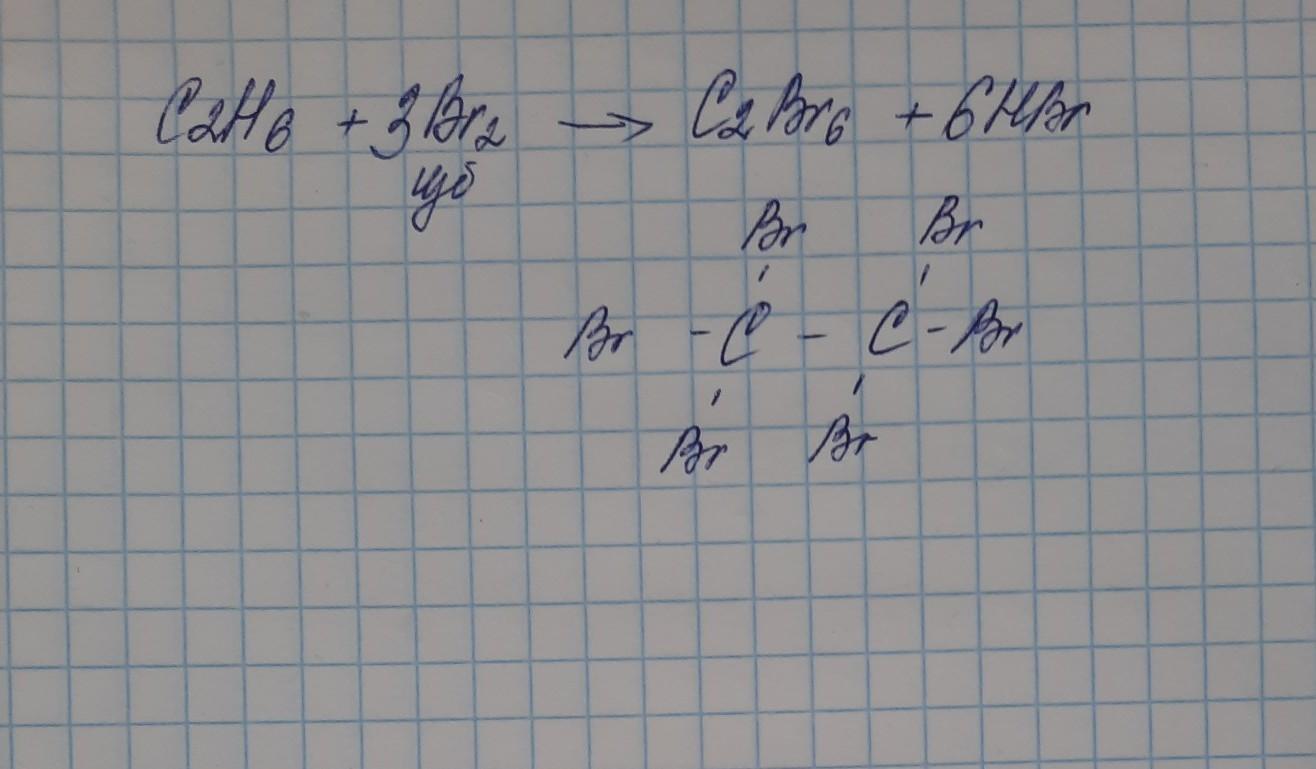 C2H6 + 3Br2 → C2Br6 + 6HBr
изб
Br Br
Br - C - C - Br
Br Br